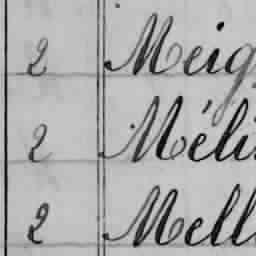 2 Meig
2 Méli
2 Mell